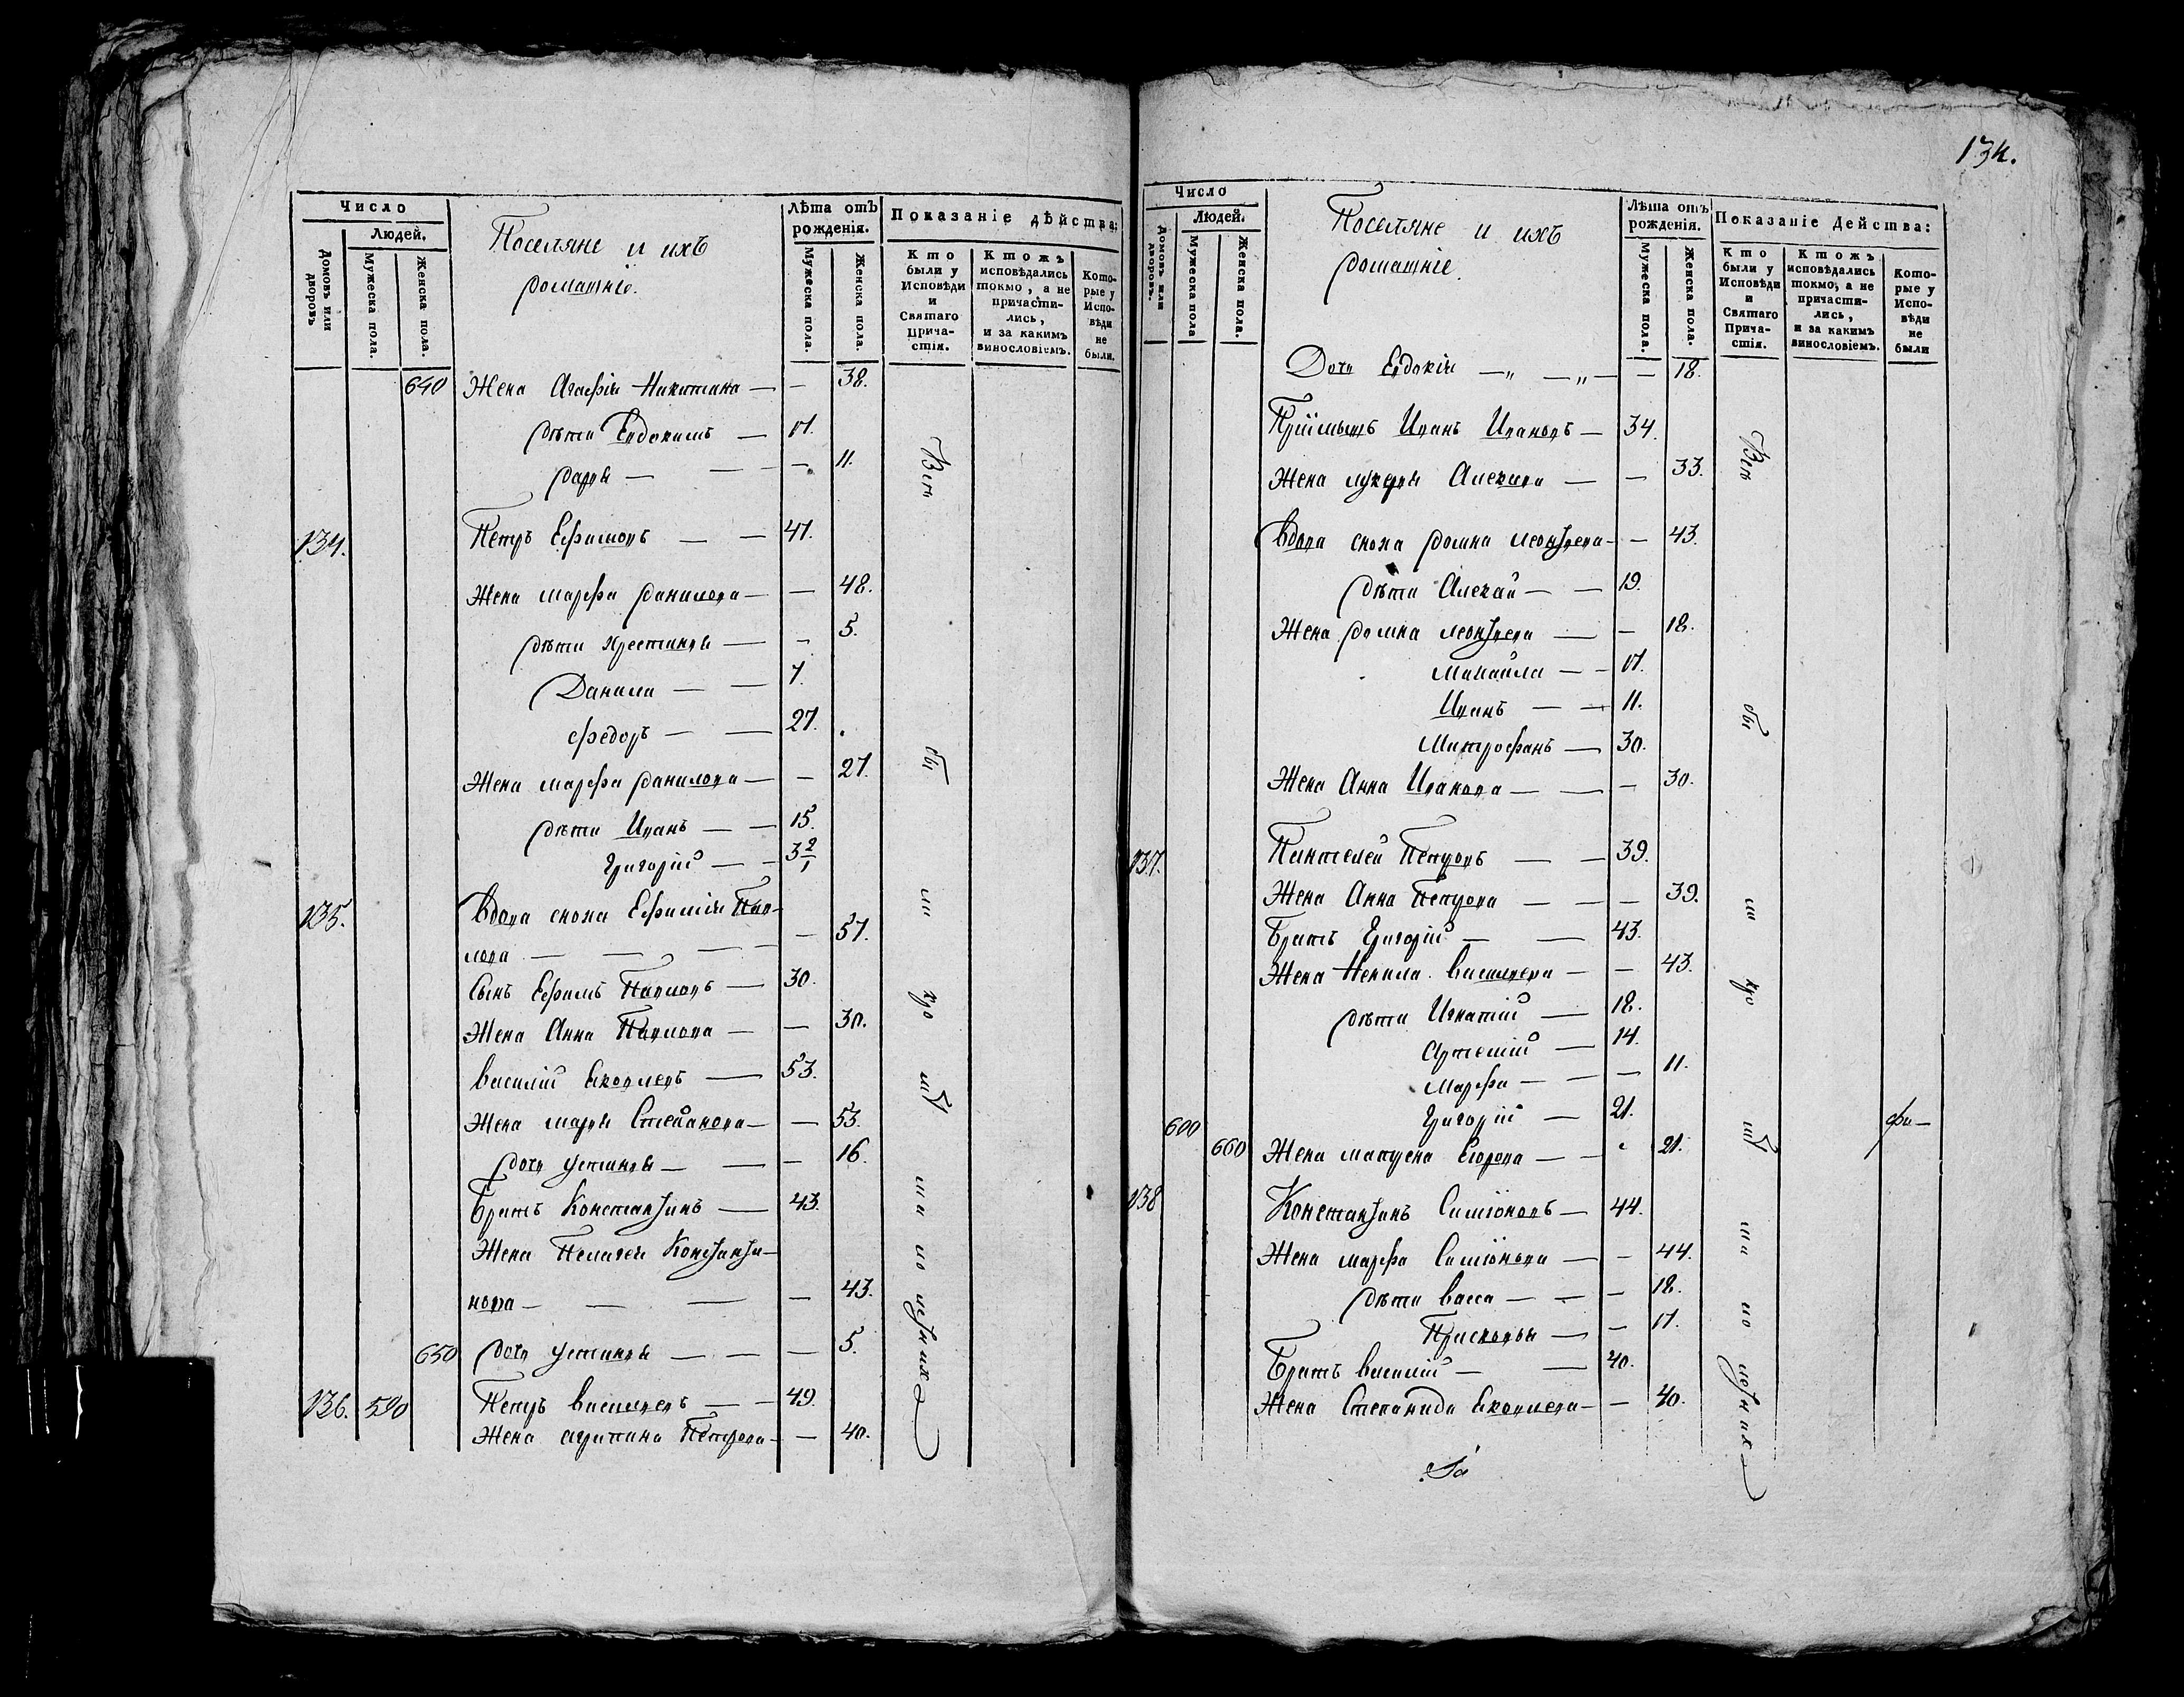 Число
Людей.
Домовъ или дворовъ
Мужеска пола.
Женска пола.
Поселяне и ихъ
домашніе.
Лѣта отъ рожденія.
Мужеска пола.
Женска пола.
Показаніе дѣйства:
Кто были у Исповѣди и Святаго Прича-стія.
Ктожъ исповѣдались токмо, а не причасти-лись, и за какимъ винословіемъ.
Кото-рые у Испо-вѣди не были.
640 Жена Агафія Никитина — — 38.
дѣти Евдокимъ — 17.
дарья — — — 11.
134. Петръ Ефимовъ — — 47.
Жена марфа данилова — — 48.
дѣти Христинья — — 5.
Данила — — 7.
федоръ — — 27.
Жена марфа данилова — — 27.
дѣти Иванъ — — 15.
Григорій — — 3 2/1
135. Вдова снова Ефимія Пав-
лова — — — — 57.
Сынъ Ефимъ Павловъ — 30.
Жена Анна Павлова — — 30.
василій Яковлевъ — 53.
Жена марья Степанова — — 53.
дочь устинья — — — 16.
Братъ Константинъ — 43.
Жена Пелагея Константи-
нова — — — — 43.
650 дочь устинья — — — 5.
136. 590 Петръ васильевъ — — 49.
Жена агрипина Петрова — — 40.
Всѣ
бы
ли
кро
мѣ
ма
ло
лѣтнихъ
134.
Число
Людей.
Домовъ или дворовъ.
Мужеска пола
Женска пола.
Поселяне и ихъ
домашніе.
Лѣта отъ рожденія.
Мужеска пола.
Женска пола.
Показаніе Действа:
Кто были у Исповѣди и Святаго Прича-стія.
Ктожъ исповѣдались токмо, а не причасти-лись, и за какимъ винословіемъ.
Кото-рые у Испо-вѣди не были
Дочь Евдокія —„ —„— — 18.
Пріймышъ Иванъ Ивановъ — 34.
Жена лукерья Алексеева — — 33.
Вдова снова домна леонтьева — — 43.
дѣти Алексай — — 19.
Жена домна леонтьева — — 18.
Михайла — — 17.
Иванъ — — 11.
Митрофанъ — 30.
Жена Анна Иванова — — — 30.
137. Пантелей Петровъ — — 39.
Жена Анна Петрова — — — 39.
Братъ Григорій — — 43.
Жена Ненила васильева — — 43.
дѣти Игнатій — 18.
Артемій — 14.
Марфа — — — 11.
600 Григорій — 21.
660 Жена матрена Егорова — — 21.
138 Константинъ Симіоновъ — 44.
Жена марфа Симіонова — — 44.
дѣти васса — — — 18.
Присковья — — 17.
Братъ василій — — 40.
Жена Степанида Яковлева — — 40.
Всѣ
бы
ли
кро
мѣ
ма
ло
лѣтнихъ